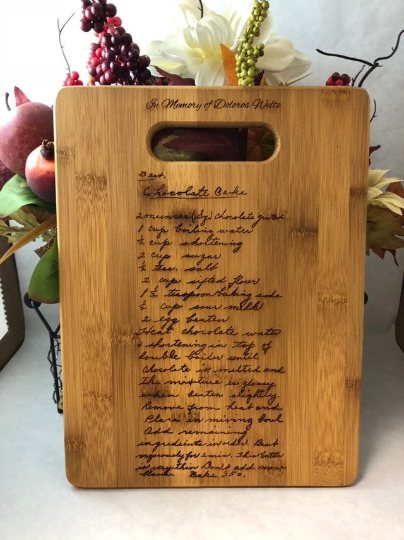 In Memory of Doloros Welte
Best
Chocolate Cake
2 ounces (sq) chocolate grated
1 cup boiling water
½ cup shortening
2 cup sugar
½ teas. salt
2 cup sifted flour
1 ½ teaspoon baking soda
½ cup sour milk
2 egg beaten
Heat chocolate water
+ shortening in top of
double boiler until
Chocolate is melted and
the mixture is glossy
when beaten slightly
Remove from heat and
Place in mixing bowl
Add remaining
ingredients in order. Beat
vigorously for 2 min. This batter
is very thin Don't add more
flour Bake 350.